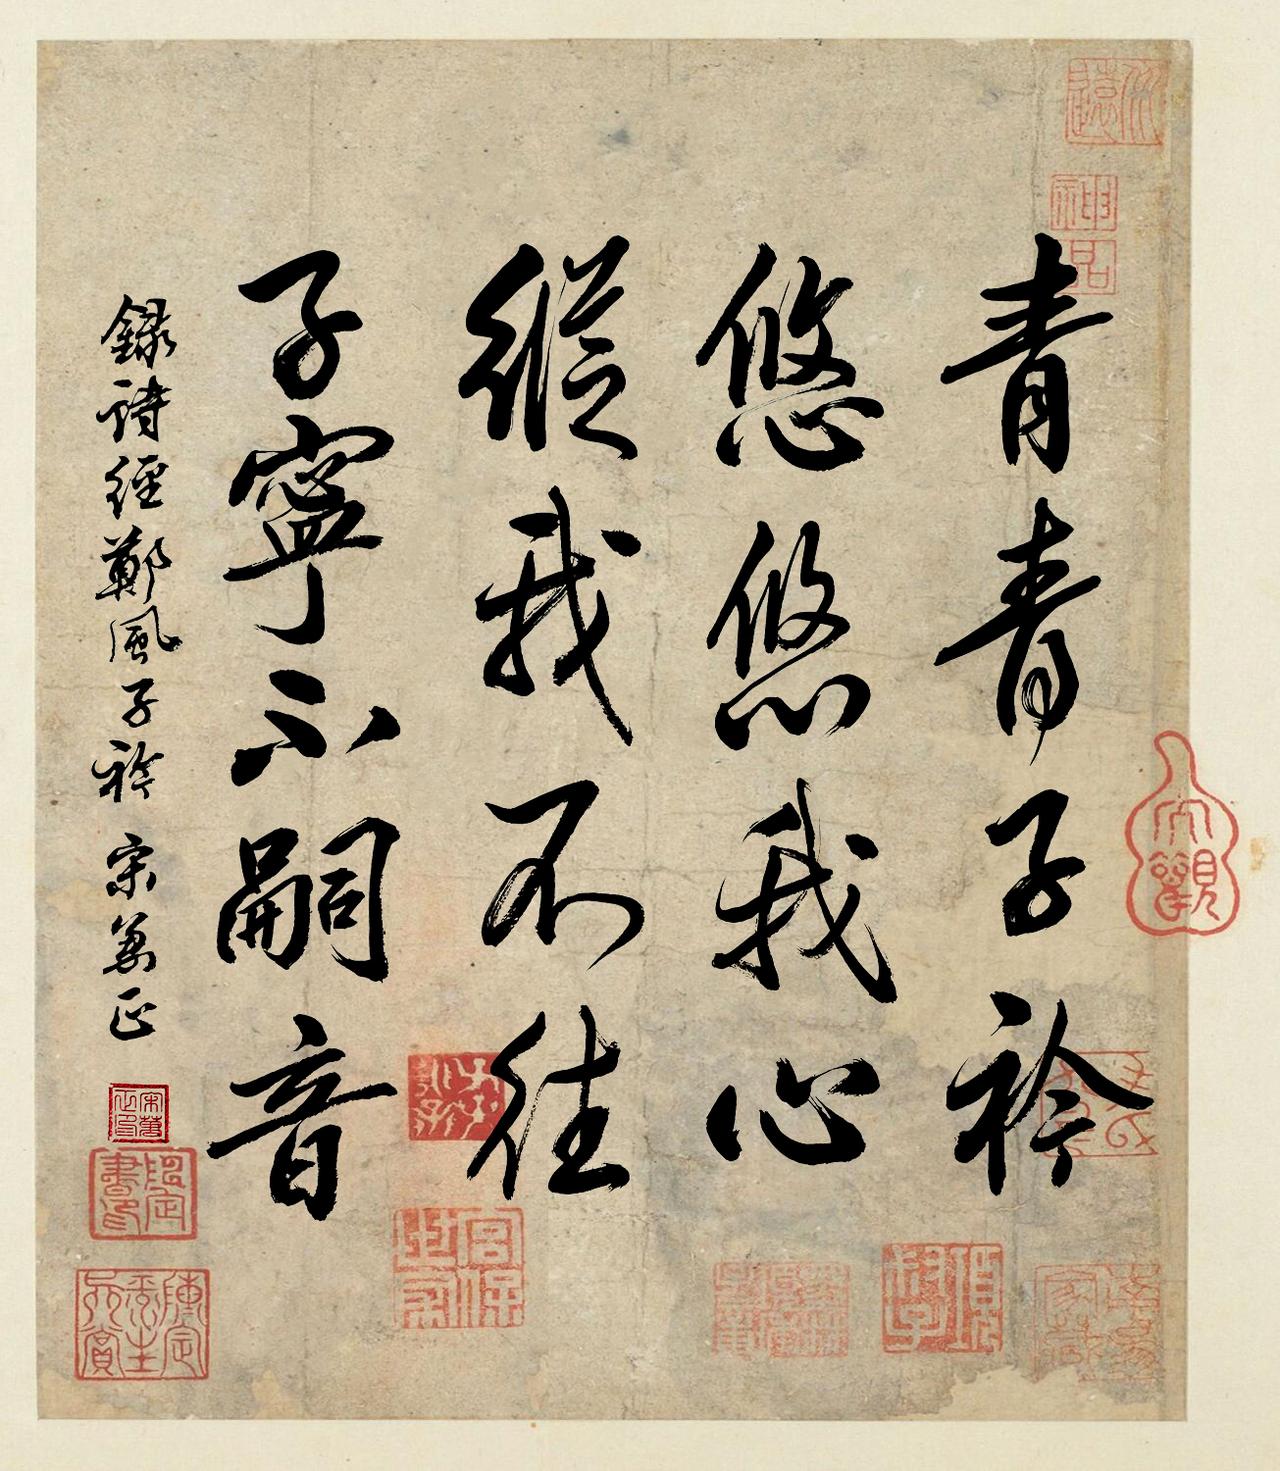 青青子衿
悠悠我心
縱我不往
子寧不嗣音
錄詩經鄭風子衿 宋萬正
神品
大觀